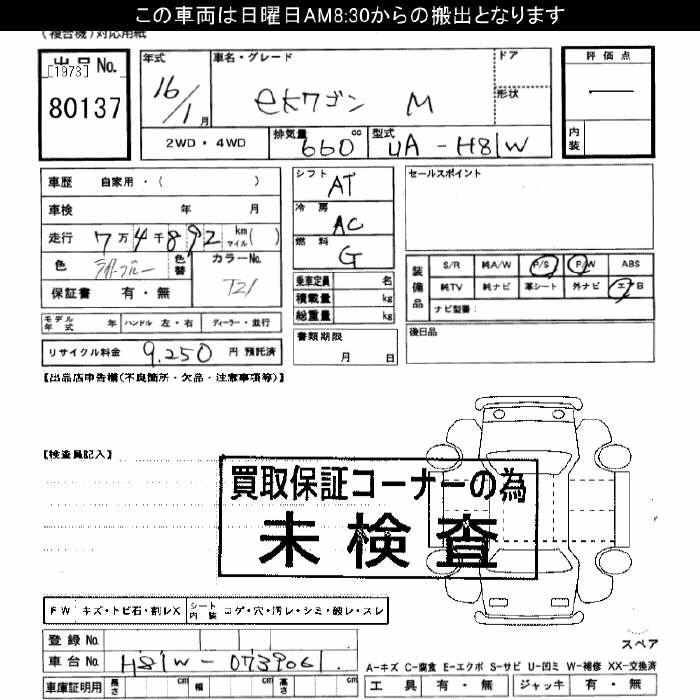 この車両は日曜日AM8:30からの搬出となります
(複合機)対応用紙
出品 No.
[1973]
80137
年式
16/1 月
車名・グレード
ekワゴン M
ドア
形状
評価点
内装
2WD・4WD
排気量 660 cc
型式 UA-H81W
車歴 自家用・( )
車検 年 月
走行 7万4千892 km マイル( )
色 ライトブルー 色替
カラーNo. T21
保証書 有・無
シフト AT
冷房 AC
燃料 G
乗車定員 名
積載量 kg
総重量 kg
書類期限
月 日
セールスポイント
装備品
S/R 純A/W P/S P/W ABS
純TV 純ナビ 革シート 外ナビ エアB
ナビ型番:
後日品
モデル年式 年 ハンドル 左・右 ディーラー・並行
リサイクル料金 9,250 円 預託済
【出品店申告欄(不良箇所・欠品・注意事項等)】
【検査員記入】
買取保証コーナーの為
未検査
FW キズ・トビ石・割レX シート内装 コゲ・穴・汚レ・シミ・破レ・スレ
登録 No.
車台 No. H81W-0739061
車庫証明用 長さ cm 幅 cm 高さ cm
スペア
A-キズ C-腐食 E-エクボ S-サビ U-凹ミ W-補修 XX-交換済
工具 有・無 ジャッキ 有・無